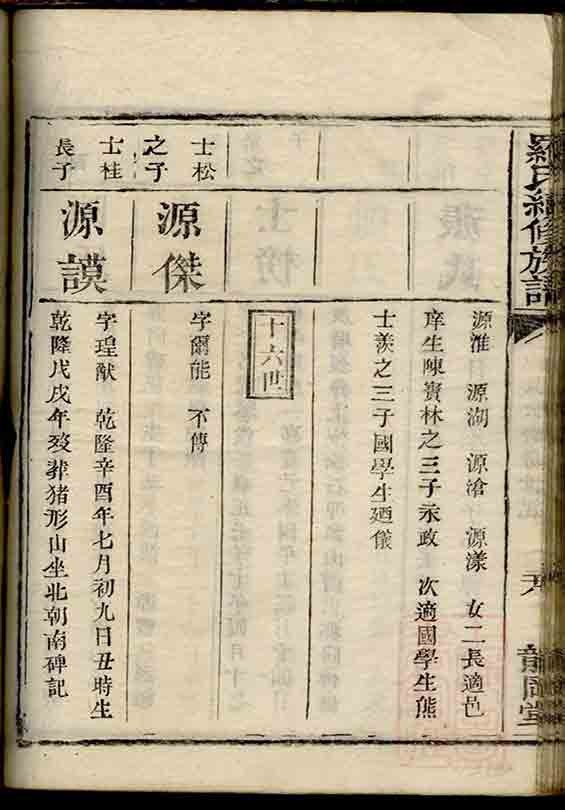 羅氏續修族譜
源淮 源湖 源滄 源漾 女二長適邑
庠生陳賓林之三子永政 次適國學生熊
士羨之三子國學生廼儀
十六世
士松
之子
源傑
字爾能 不傳
士桂
長子
源謨
字瑝猷 乾隆辛酉年七月初九日丑時生
乾隆戊戌年歿葬猪形山坐北朝南碑記